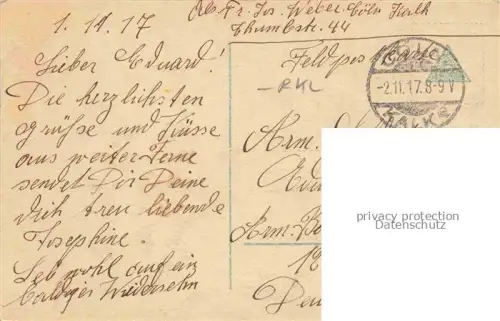 Abs. Fr. Jos. Weber. Cöln Fürth
Thumbstr. 44
1. 11. 17
Lieber Eduard!
Die herzlichsten
grüße und Küsse
aus weiter Ferne
sendet Dir Deine
dich treu liebende
Josephine.
Leb wohl auf ein
baldiges Wiedersehn
Feldpost
-2.11.17.8-9V
KALK
Arm.
Arm.
privacy protection
Datenschutz